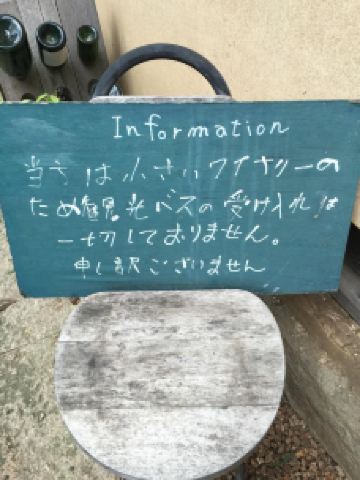 Information
当方は小さいワイナリーの
ため観光バスの受け入れは
一切しておりません。
申し訳ございません